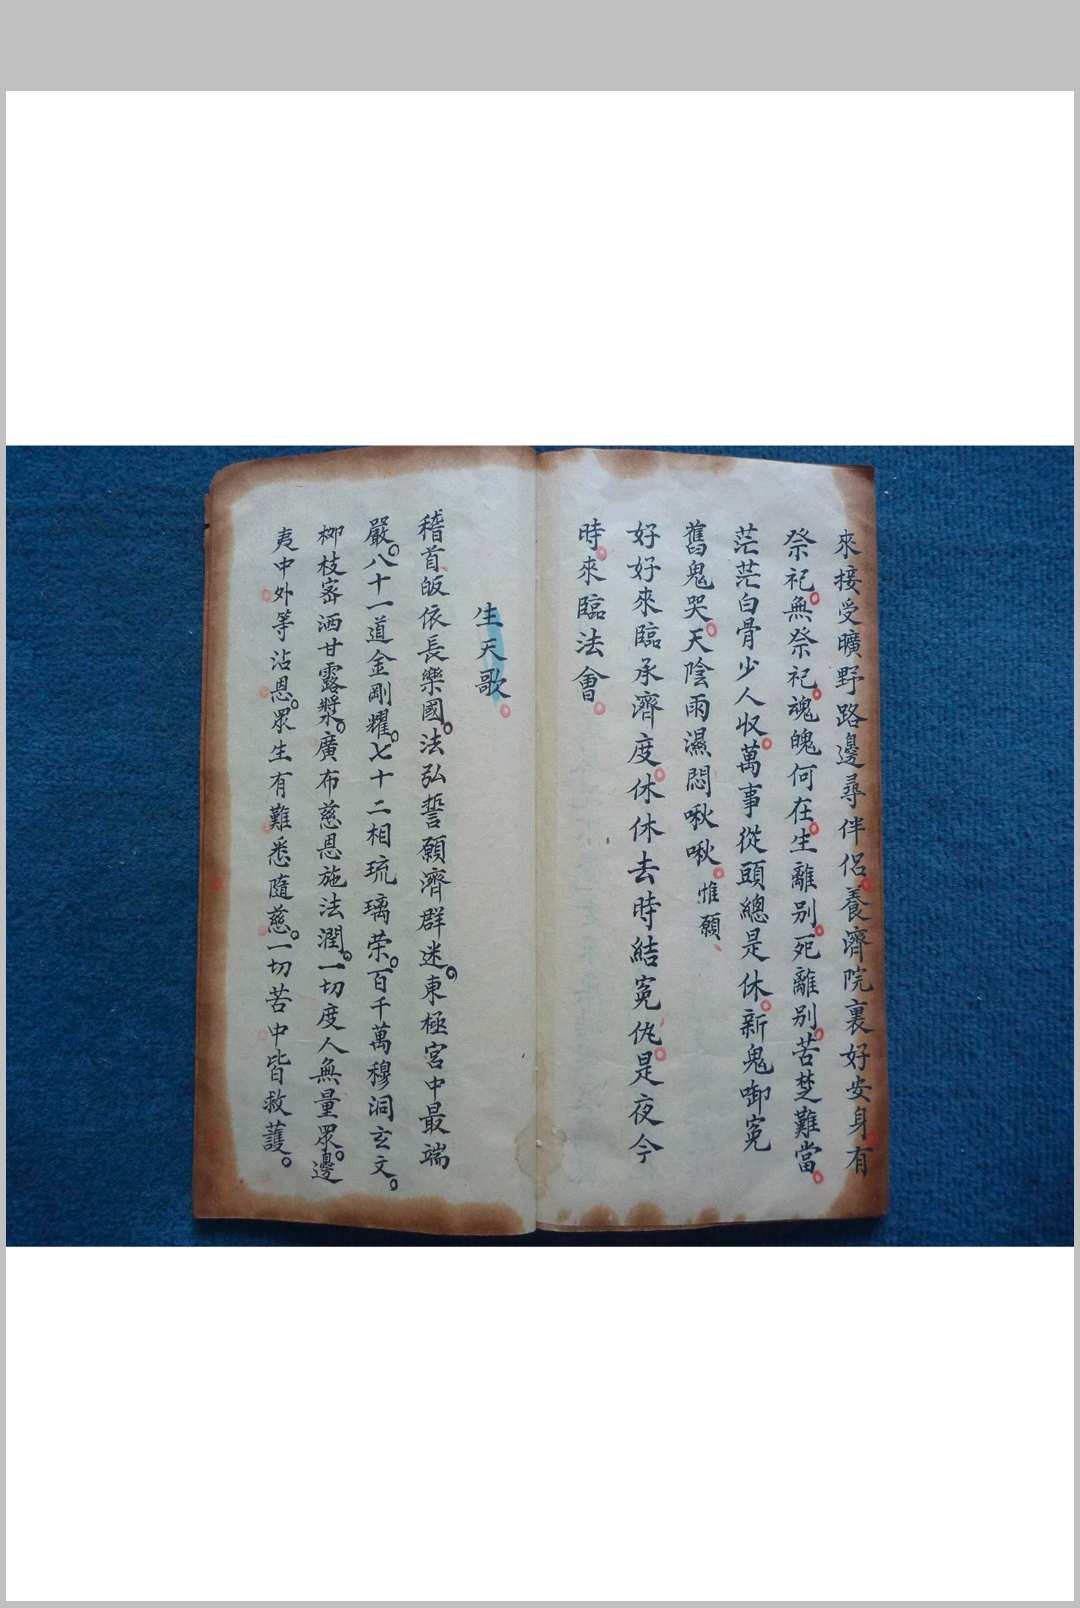 來接受曠野路邊尋伴侶。養濟院裏好安身。有
祭祀。無祭祀。魂魄何在。生離别。死離别。苦楚難當。
茫茫白骨少人收。萬事從頭總是休。新鬼啣冤
舊鬼哭。天陰雨濕悶啾啾。惟願、
好好來臨承濟度。休休去時結冤仇。是夜今
時。來臨法會。
生天歌。
稽首皈依長樂國。法弘誓願濟群迷。東極宮中最端
嚴。八十一道金剛耀。七十二相琉璃荣。百千萬穆洞玄文。
柳枝宻洒甘露漿。廣布慈恩施法潤。一切度人無量眾。邊
夷中外等沾恩。眾生有難悉隨慈。一切苦中皆救護。